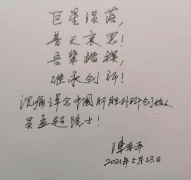 巨星陨落，
普天哀思！
吾辈楷模，
继承创新！
沉痛悼念中国肝胆外科创始人，
吴孟超院士！
陈孝平
2021年5月23日